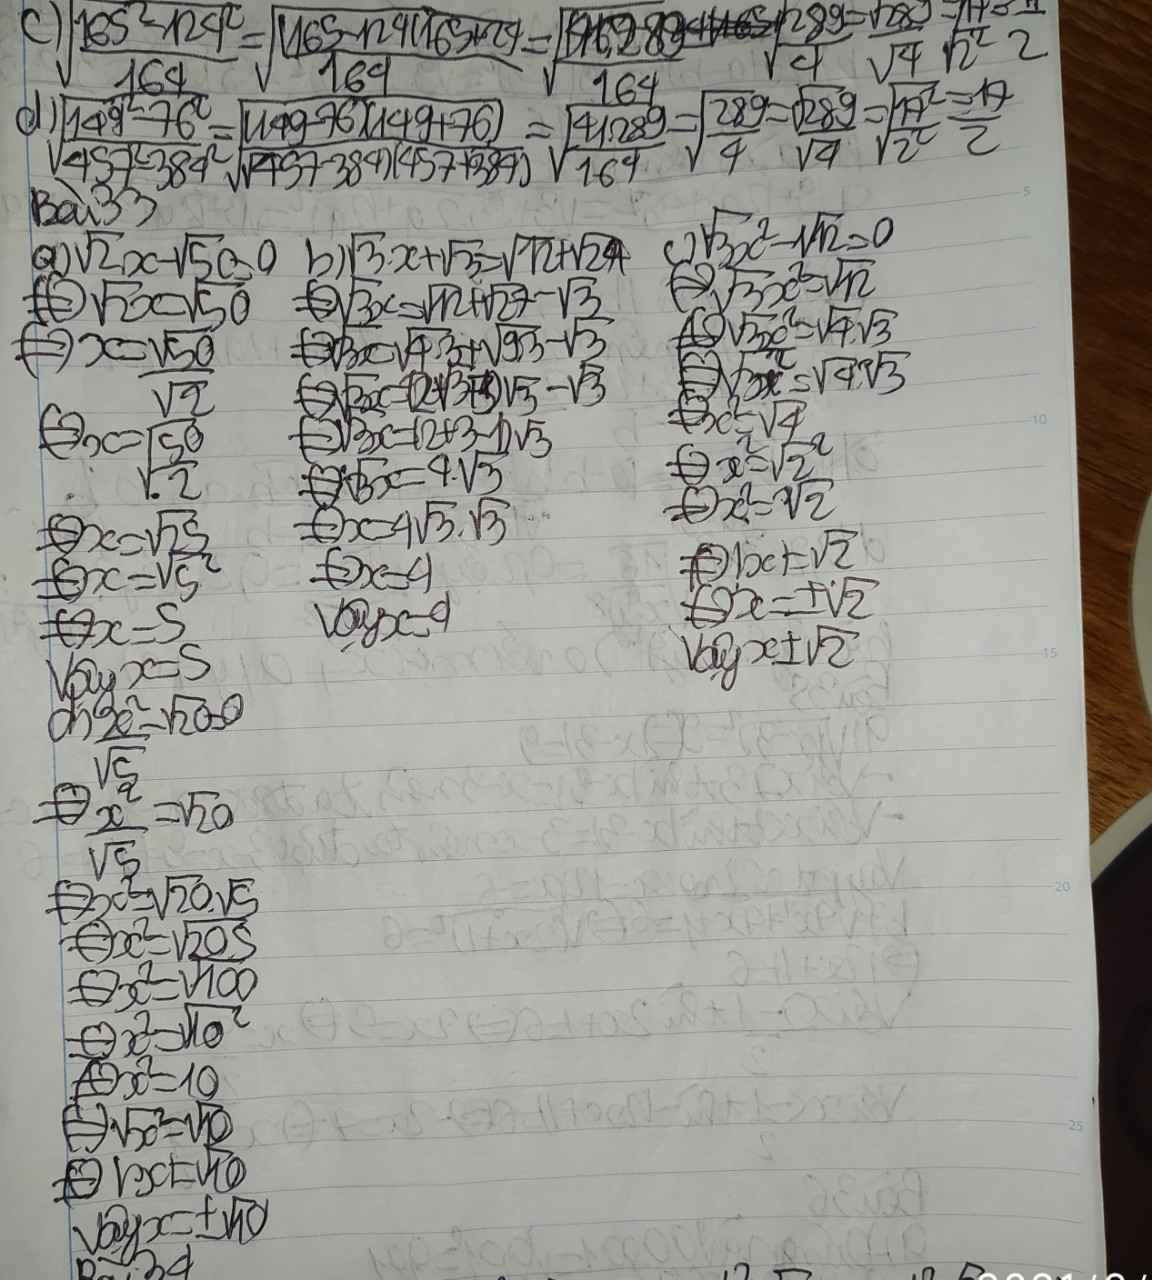 c) √(165²-124²)/164 = √(165-124)(165+124)/164 = √41.289/164 = √289/4 = √289/√4 = √17²/√2² = 17/2
d) √(149²-76²)/(457²-384²) = √(149-76)(149+76)/(457-384)(457+384) = √41.289/164 = √289/4 = √289/√4 = √17²/√2² = 17/2
Bài 33
a) √2.x-√50=0
⇔ √2x=√50
⇔ x=√50/√2
⇔ x=√50/2
⇔ x=√25
⇔ x=√5²
⇔ x=5
Vậy x=5
b) √3.x+√3=√12+√27
⇔ √3x=√12+√27-√3
⇔ √3x=√4.3+√9.3-√3
⇔ √3x=2√3+3√3-√3
⇔ √3x=(2+3-1)√3
⇔ √3x=4.√3
⇔ x=4√3.√3
⇔ x=4
Vậy x=4
c) √3x²-√12=0
⇔ √3x²=√12
⇔ √3x²=√4.√3
⇔ √3x²=√4.√3
⇔ x²=√4
⇔ x²=√2²
⇔ x²=√2
⇔ |x|=√2
⇔ x=±√2
Vậy x±√2
d) x²/√5-√20=0
⇔ x²/√5=√20
⇔ x²=√20.√5
⇔ x²=√20.5
⇔ x²=√100
⇔ x²=√10²
⇔ x²=10
⇔ √x²=√10
⇔ |x|=√10
Vậy x=±√10
Bài 34